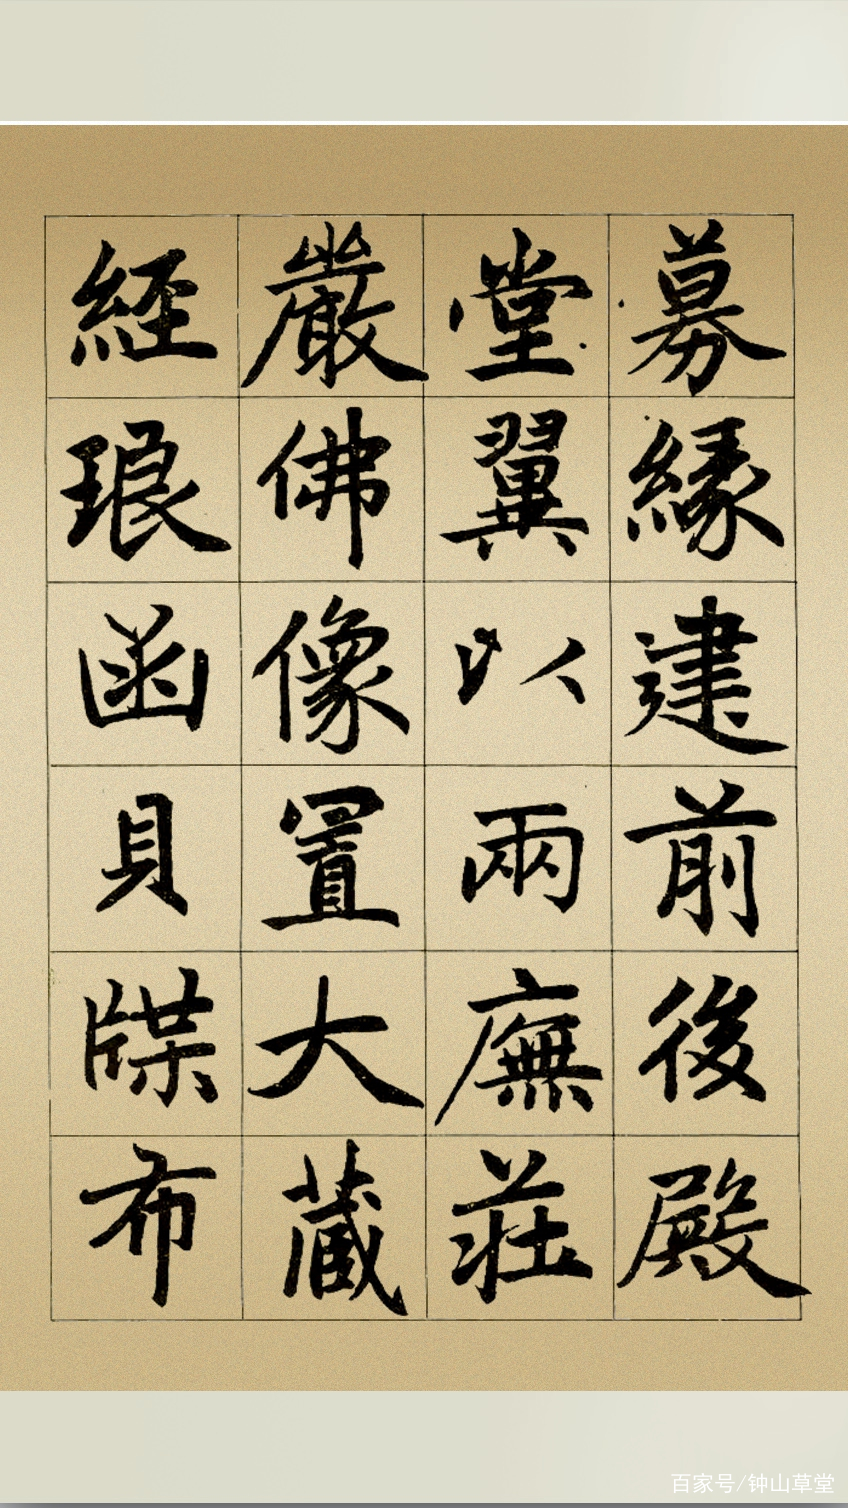 募緣建前後殿
堂翼以兩廡莊
嚴佛像置大藏
經琅函貝牒布
百家号/钟山草堂